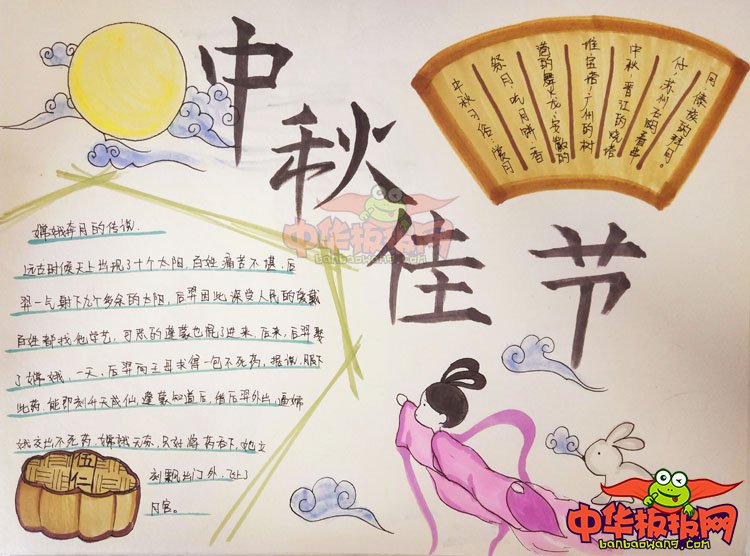 中秋佳节
中秋习俗:赏月
祭月,吃月饼,香
港的舞火龙,安徽的
堆宝塔,广州的树
中秋,晋江的烧塔
仔,苏州石湖看串
月,傣族的拜月。
嫦娥奔月的传说.
远古时候天上出现了十个太阳,百姓痛苦不堪,后
羿一气射下九个多余的太阳,后羿因此深受人民的爱戴
百姓都找他学艺,可恶的逢蒙也混了进来,后来,后羿娶
了嫦娥,一天,后羿向王母求得一包不死药,据说,服下
此药,能即刻升天成仙,逢蒙知道后,借后羿外出,逼嫦
娥交出不死药,嫦娥无奈,只好将药吞下,她立
刻飘出门外,飞上了
月宫。
伍
仁
中华板报网
banbaowang.com
中华板报网
banbaowang.com